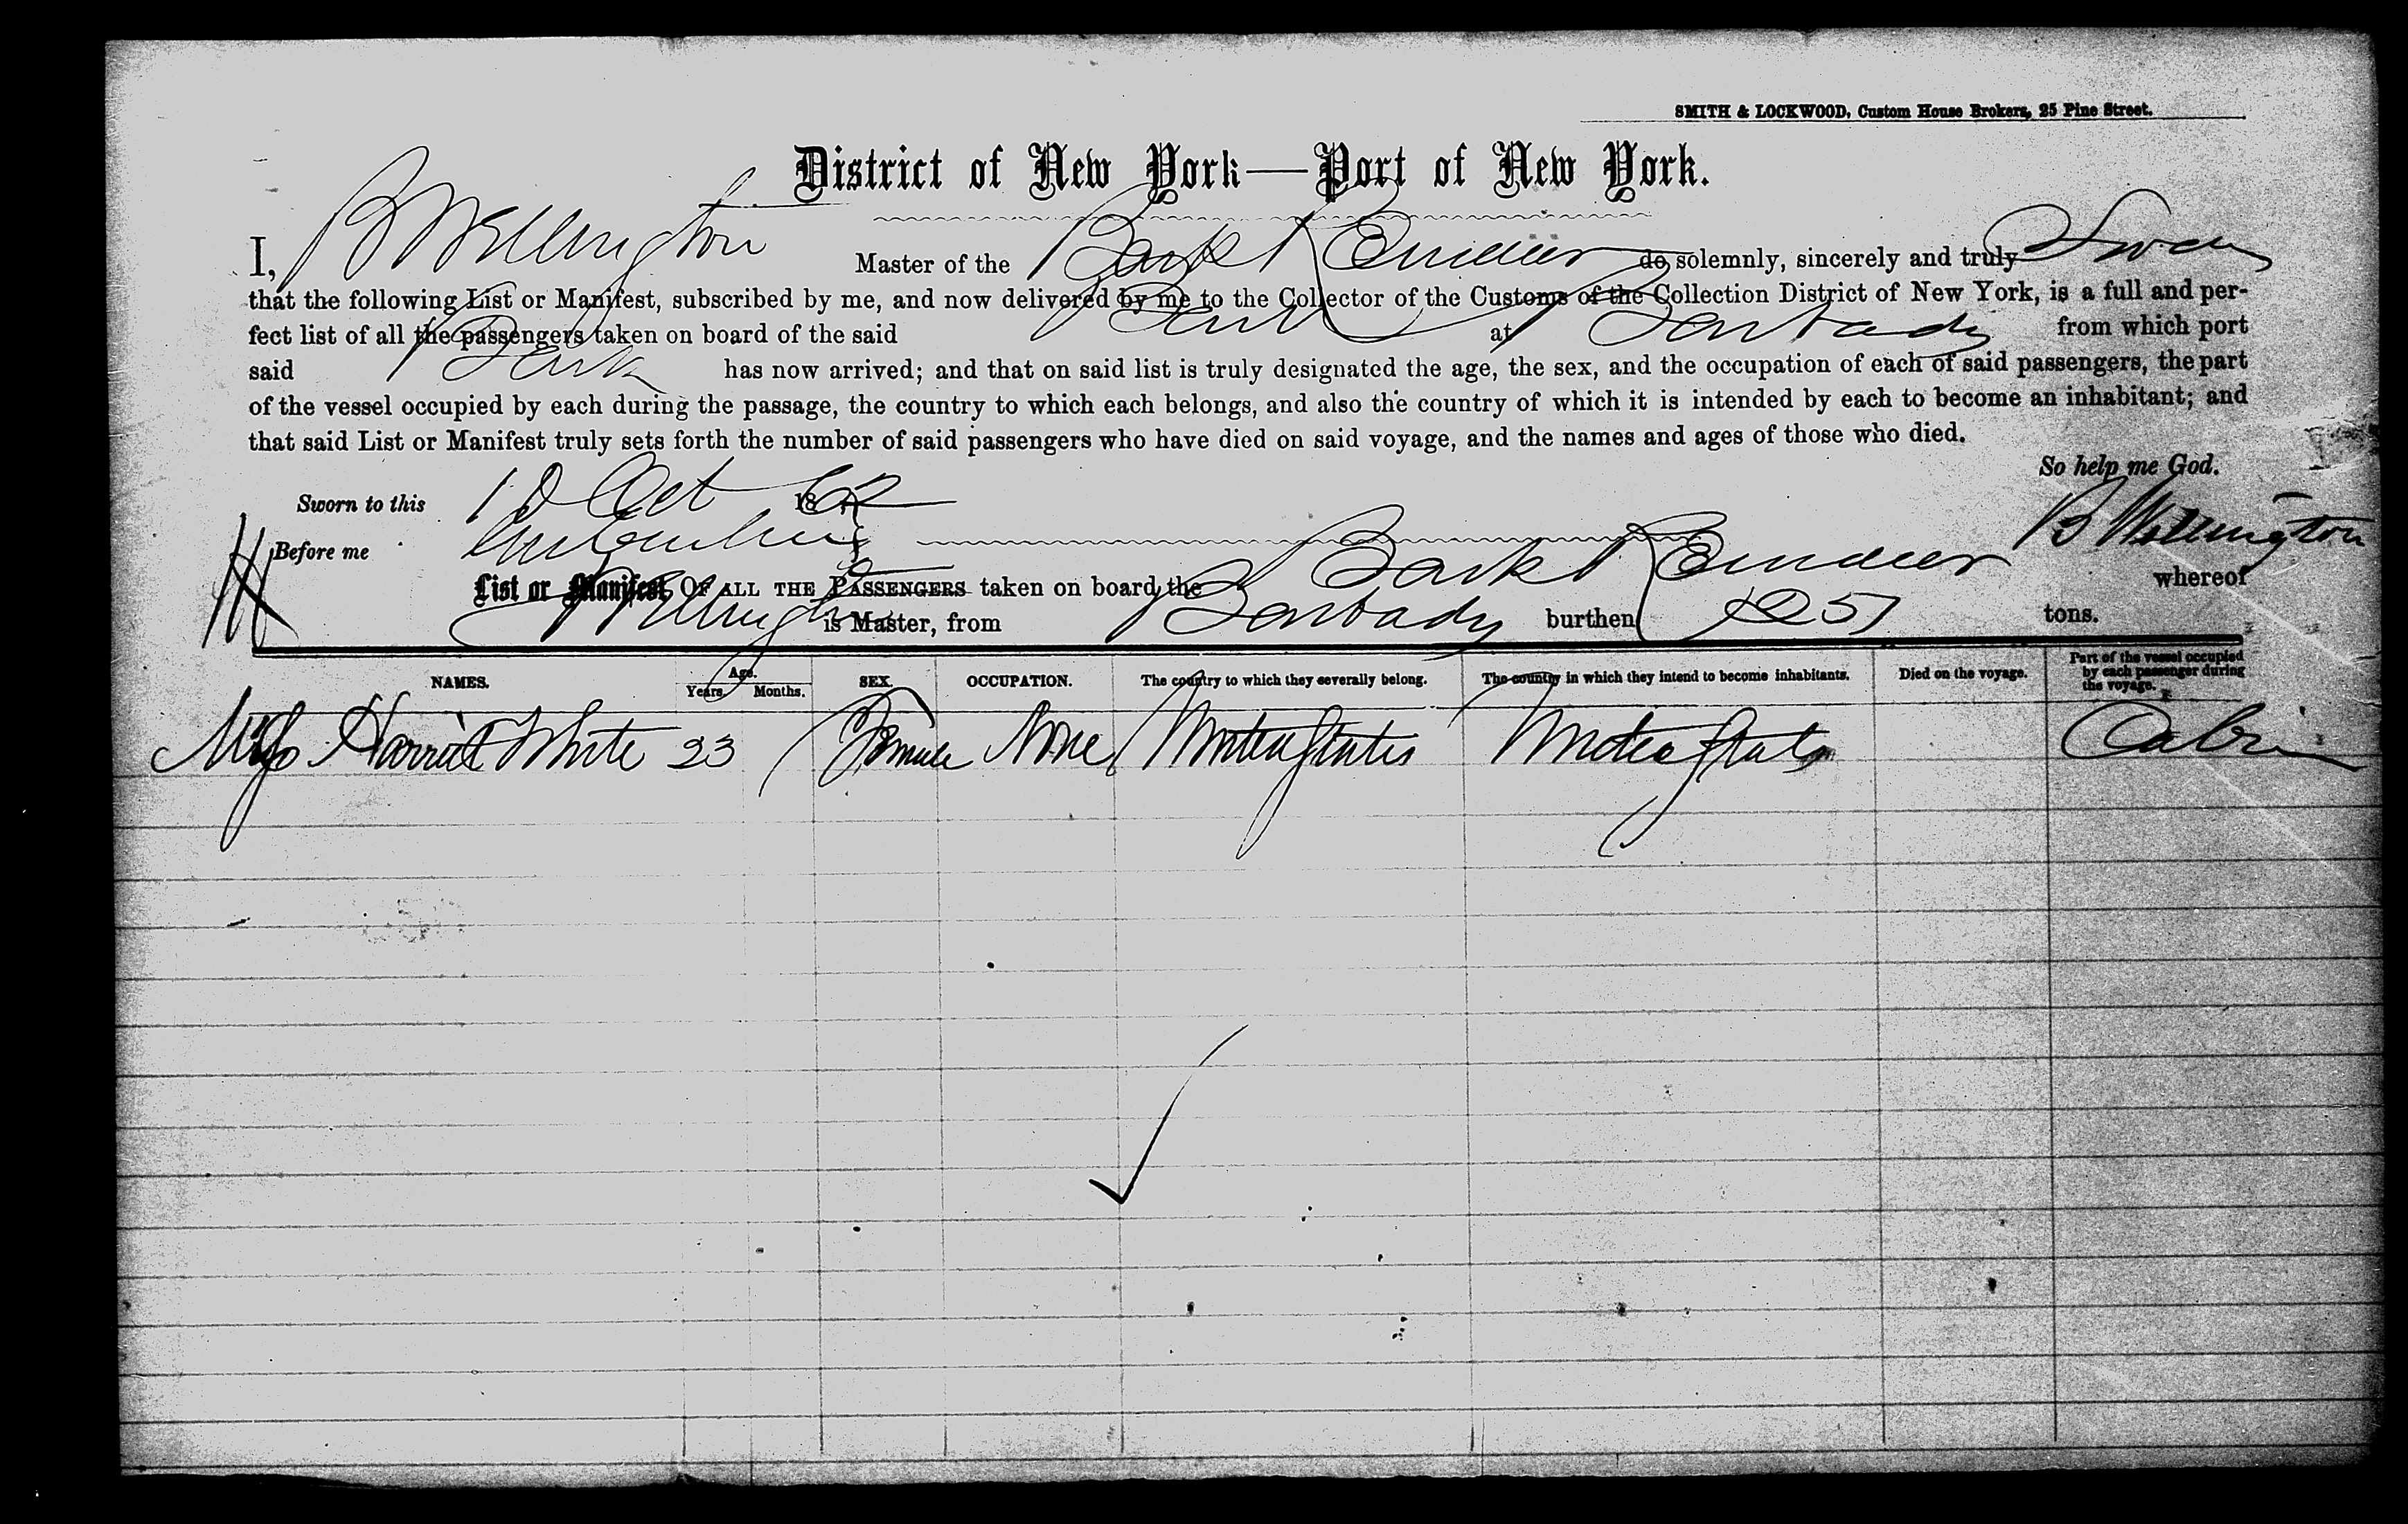 SMITH & LOCKWOOD, Custom House Brokers, 25 Pine Street.
District of New York—Port of New York.
I, B Wellington Master of the Bark Eundeer do solemnly, sincerely and truly Swear
that the following List or Manifest, subscribed by me, and now delivered by me to the Collector of the Customs of the Collection District of New York, is a full and per-
fect list of all the passengers taken on board of the said Bark at Barbady from which port
said Bark has now arrived; and that on said list is truly designated the age, the sex, and the occupation of each of said passengers, the part
of the vessel occupied by each during the passage, the country to which each belongs, and also the country of which it is intended by each to become an inhabitant; and
that said List or Manifest truly sets forth the number of said passengers who have died on said voyage, and the names and ages of those who died.
So help me God.
Sworn to this 10 Oct 1862
B Wellington
Before me
List or Manifest OF ALL THE PASSENGERS taken on board the Bark whereof
B Wellington is Master, from Barbady burthen 251 tons.
NAMES. Age. Years. Months. SEX. OCCUPATION. The country to which they severally belong. The country in which they intend to become inhabitants. Died on the voyage. Part of the vessel occupied by each passenger during the voyage.
Miss Harriet White 23 Female None United States United States Cabin